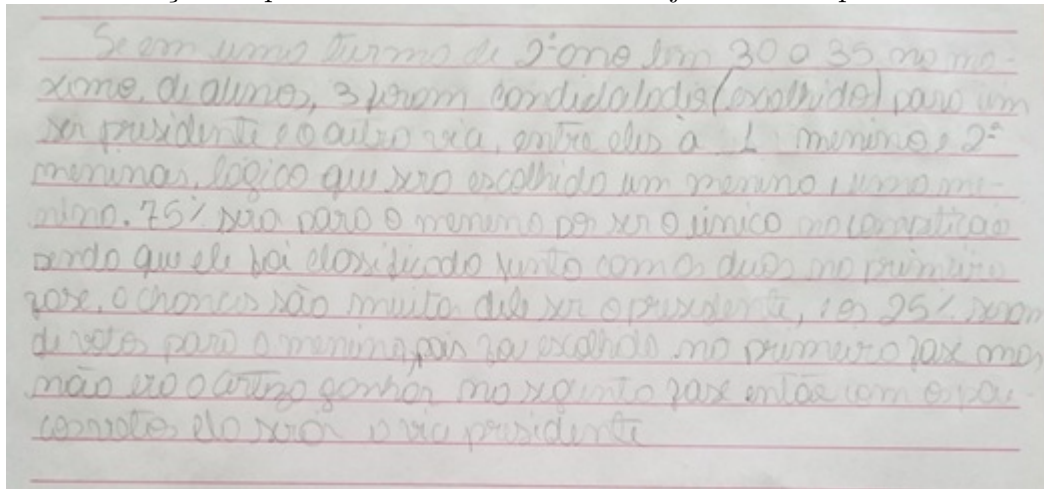 Se em uma turma de 2º ano tem 30 a 35 no ma-
ximo, de alunos, 3 foram candidatados (escolhido) para um
ser presidente e o outro vice, entre eles à 1 menino e 2ª
meninas, lógico que será escolhido um menino e uma me-
nina. 75% será para o menino por ser o único na competição
sendo que ele foi classificado junto com as duas na primeira
fase, a chances são muita dele ser o presidente, e os 25% seram
de votos para a menina, pois foi escolhida na primeira fase mas
não era o certo ganhar na segunda fase então com os pou-
cos votos ela será a vice presidente